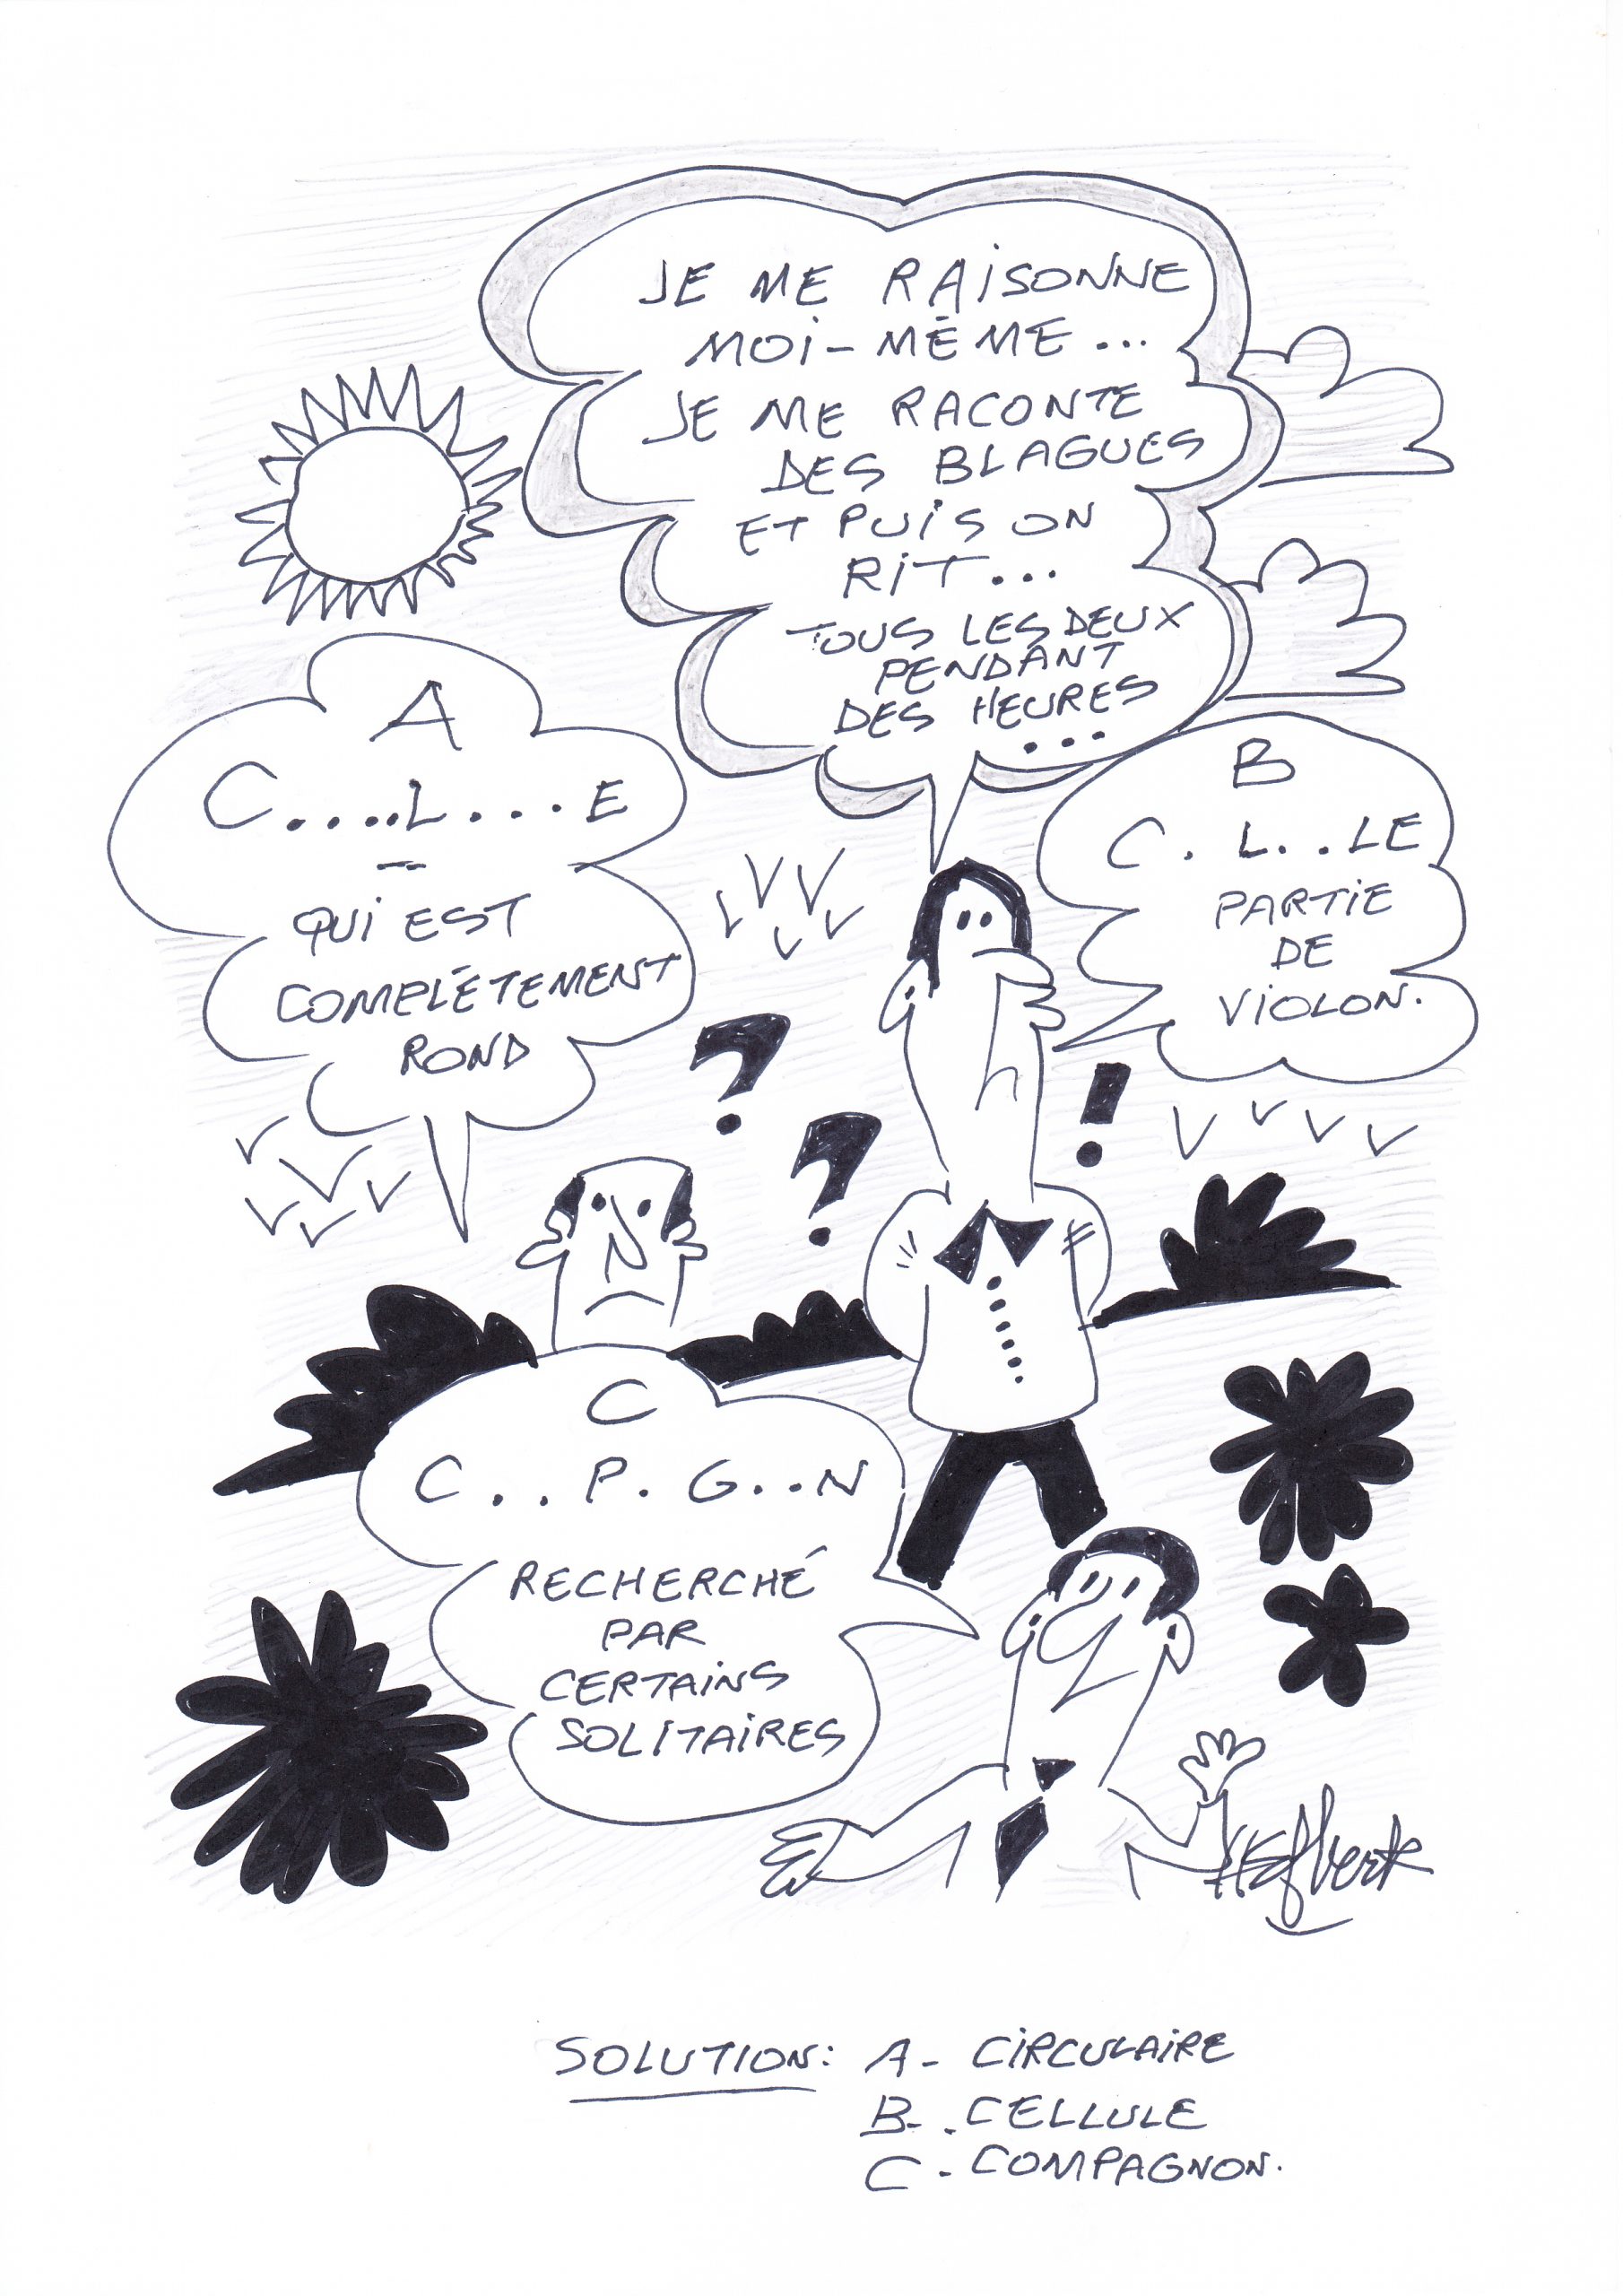 JE ME RAISONNE
MOI-MÊME...
JE ME RACONTE
DES BLAGUES
ET PUIS ON
RIT...
TOUS LES DEUX
PENDANT
DES HEURES
...
A
C.....L....E
QUI EST
COMPLÉTEMENT
ROND
B
C.L..LE
PARTIE
DE
VIOLON.
?
?
!
C
C..P.G..N
RECHERCHÉ
PAR
CERTAINS
SOLITAIRES
SOLUTION: A- CIRCULAIRE
B-.CELLULE
C-COMPAGNON.